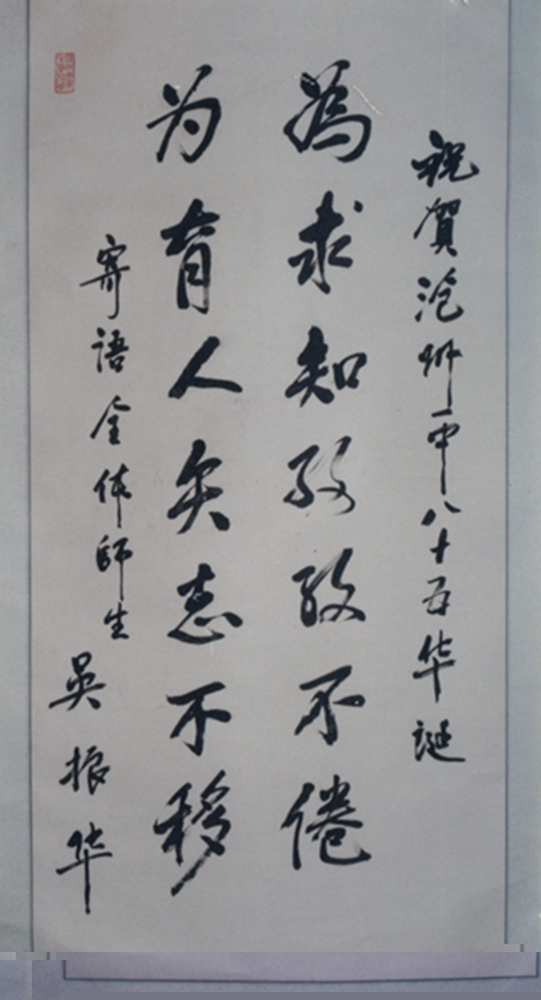 祝贺沧州一中八十五华诞
為求知孜孜不倦
为育人矢志不移
寄语全体師生
吴振华